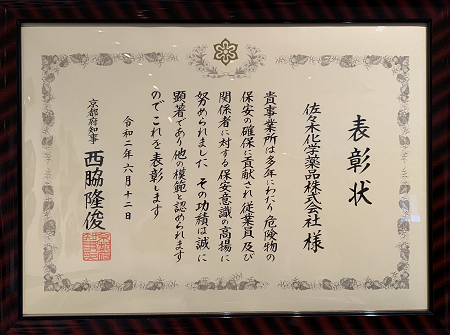 表彰状
佐々木化学薬品株式会社 様
貴事業所は多年にわたり危険物の
保安の確保に貢献され従業員及び
関係者に対する保安意識の高揚に
努められました その功績は誠に
顕著であり他の模範と認められます
のでこれを表彰します
令和二年六月十二日
京都府知事 西脇隆俊